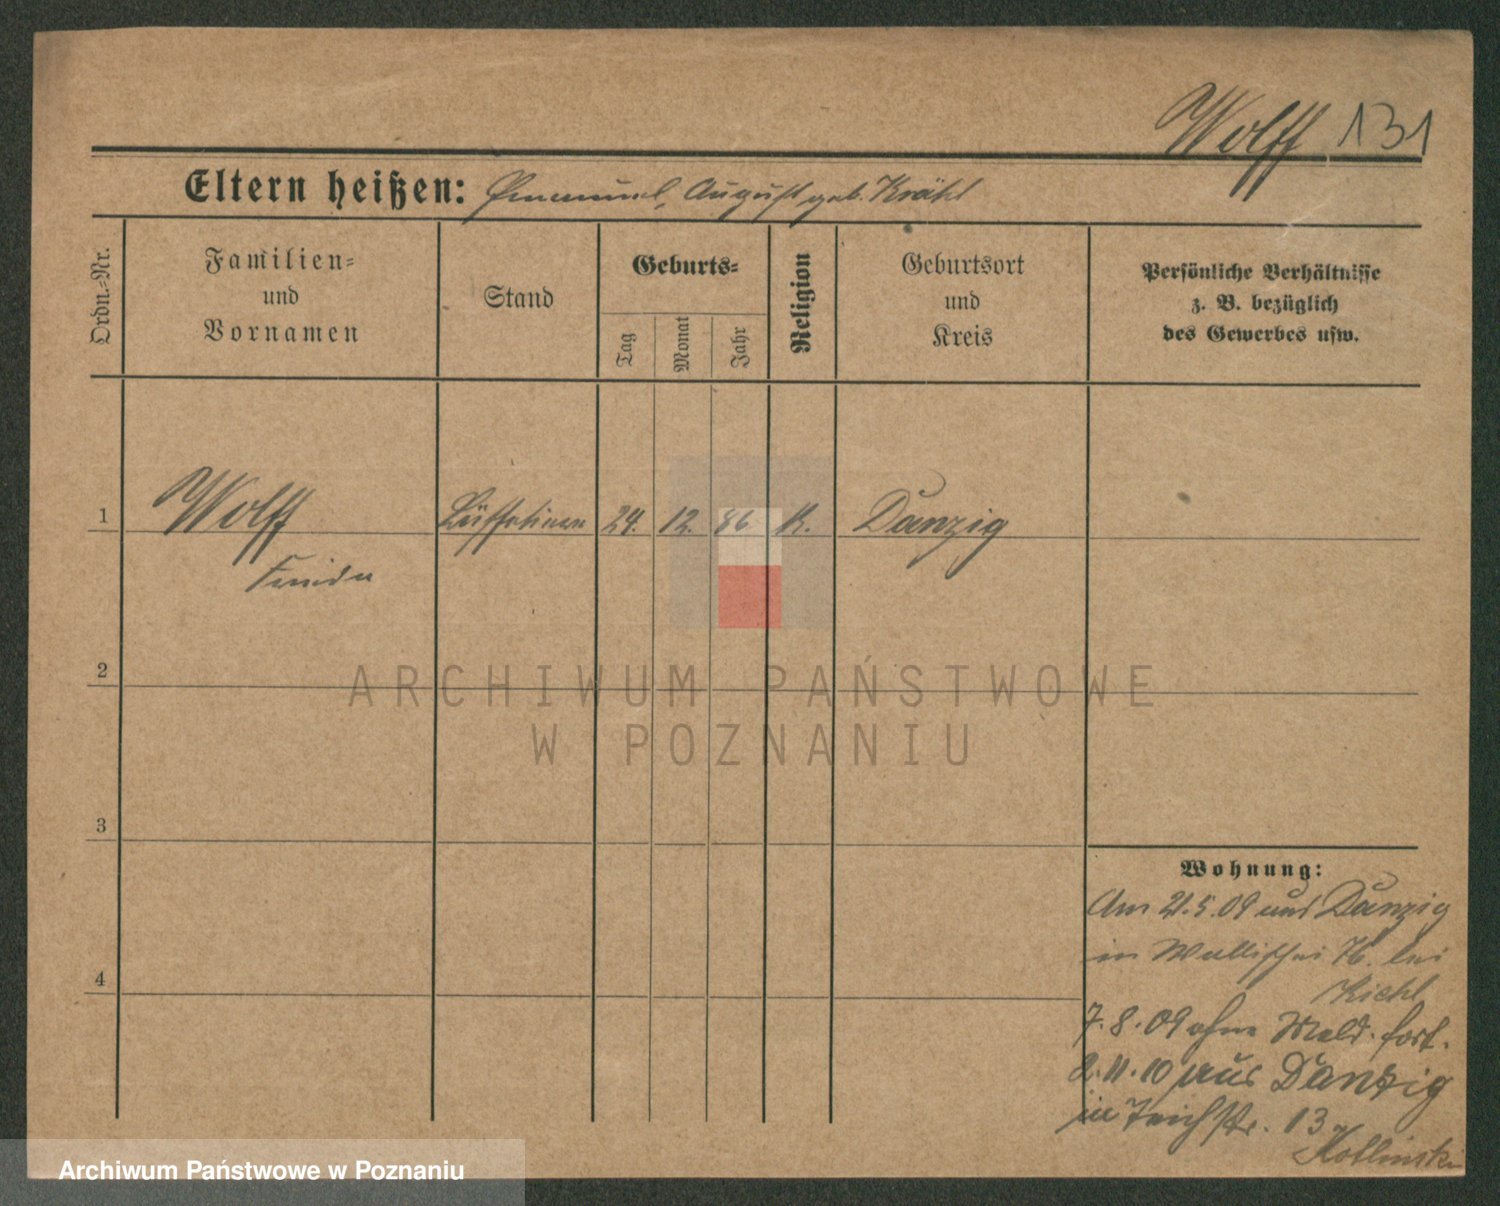 Wolff 131
Eltern heißen: Emanuel, August geb. Krähl
Ordn.-Nr.
Familien-
und
Vornamen
Stand
Geburts-
Tag
Monat
Jahr
Religion
Geburtsort
und
Kreis
Persönliche Verhältnisse
z. B. bezüglich
des Gewerbes usw.
1 Wolff 24. 12. 86 K. Danzig
2
3
4
Wohnung:
Am 21.5.09 aus Danzig
in Wallischei 76. bei
Kiehl
7.8.09 ohne Meld. fort.
2.11.10 aus Danzig
in Teichstr. 13
Kotlinski
ARCHIWUM PAŃSTWOWE
W POZNANIU
Archiwum Państwowe w Poznaniu